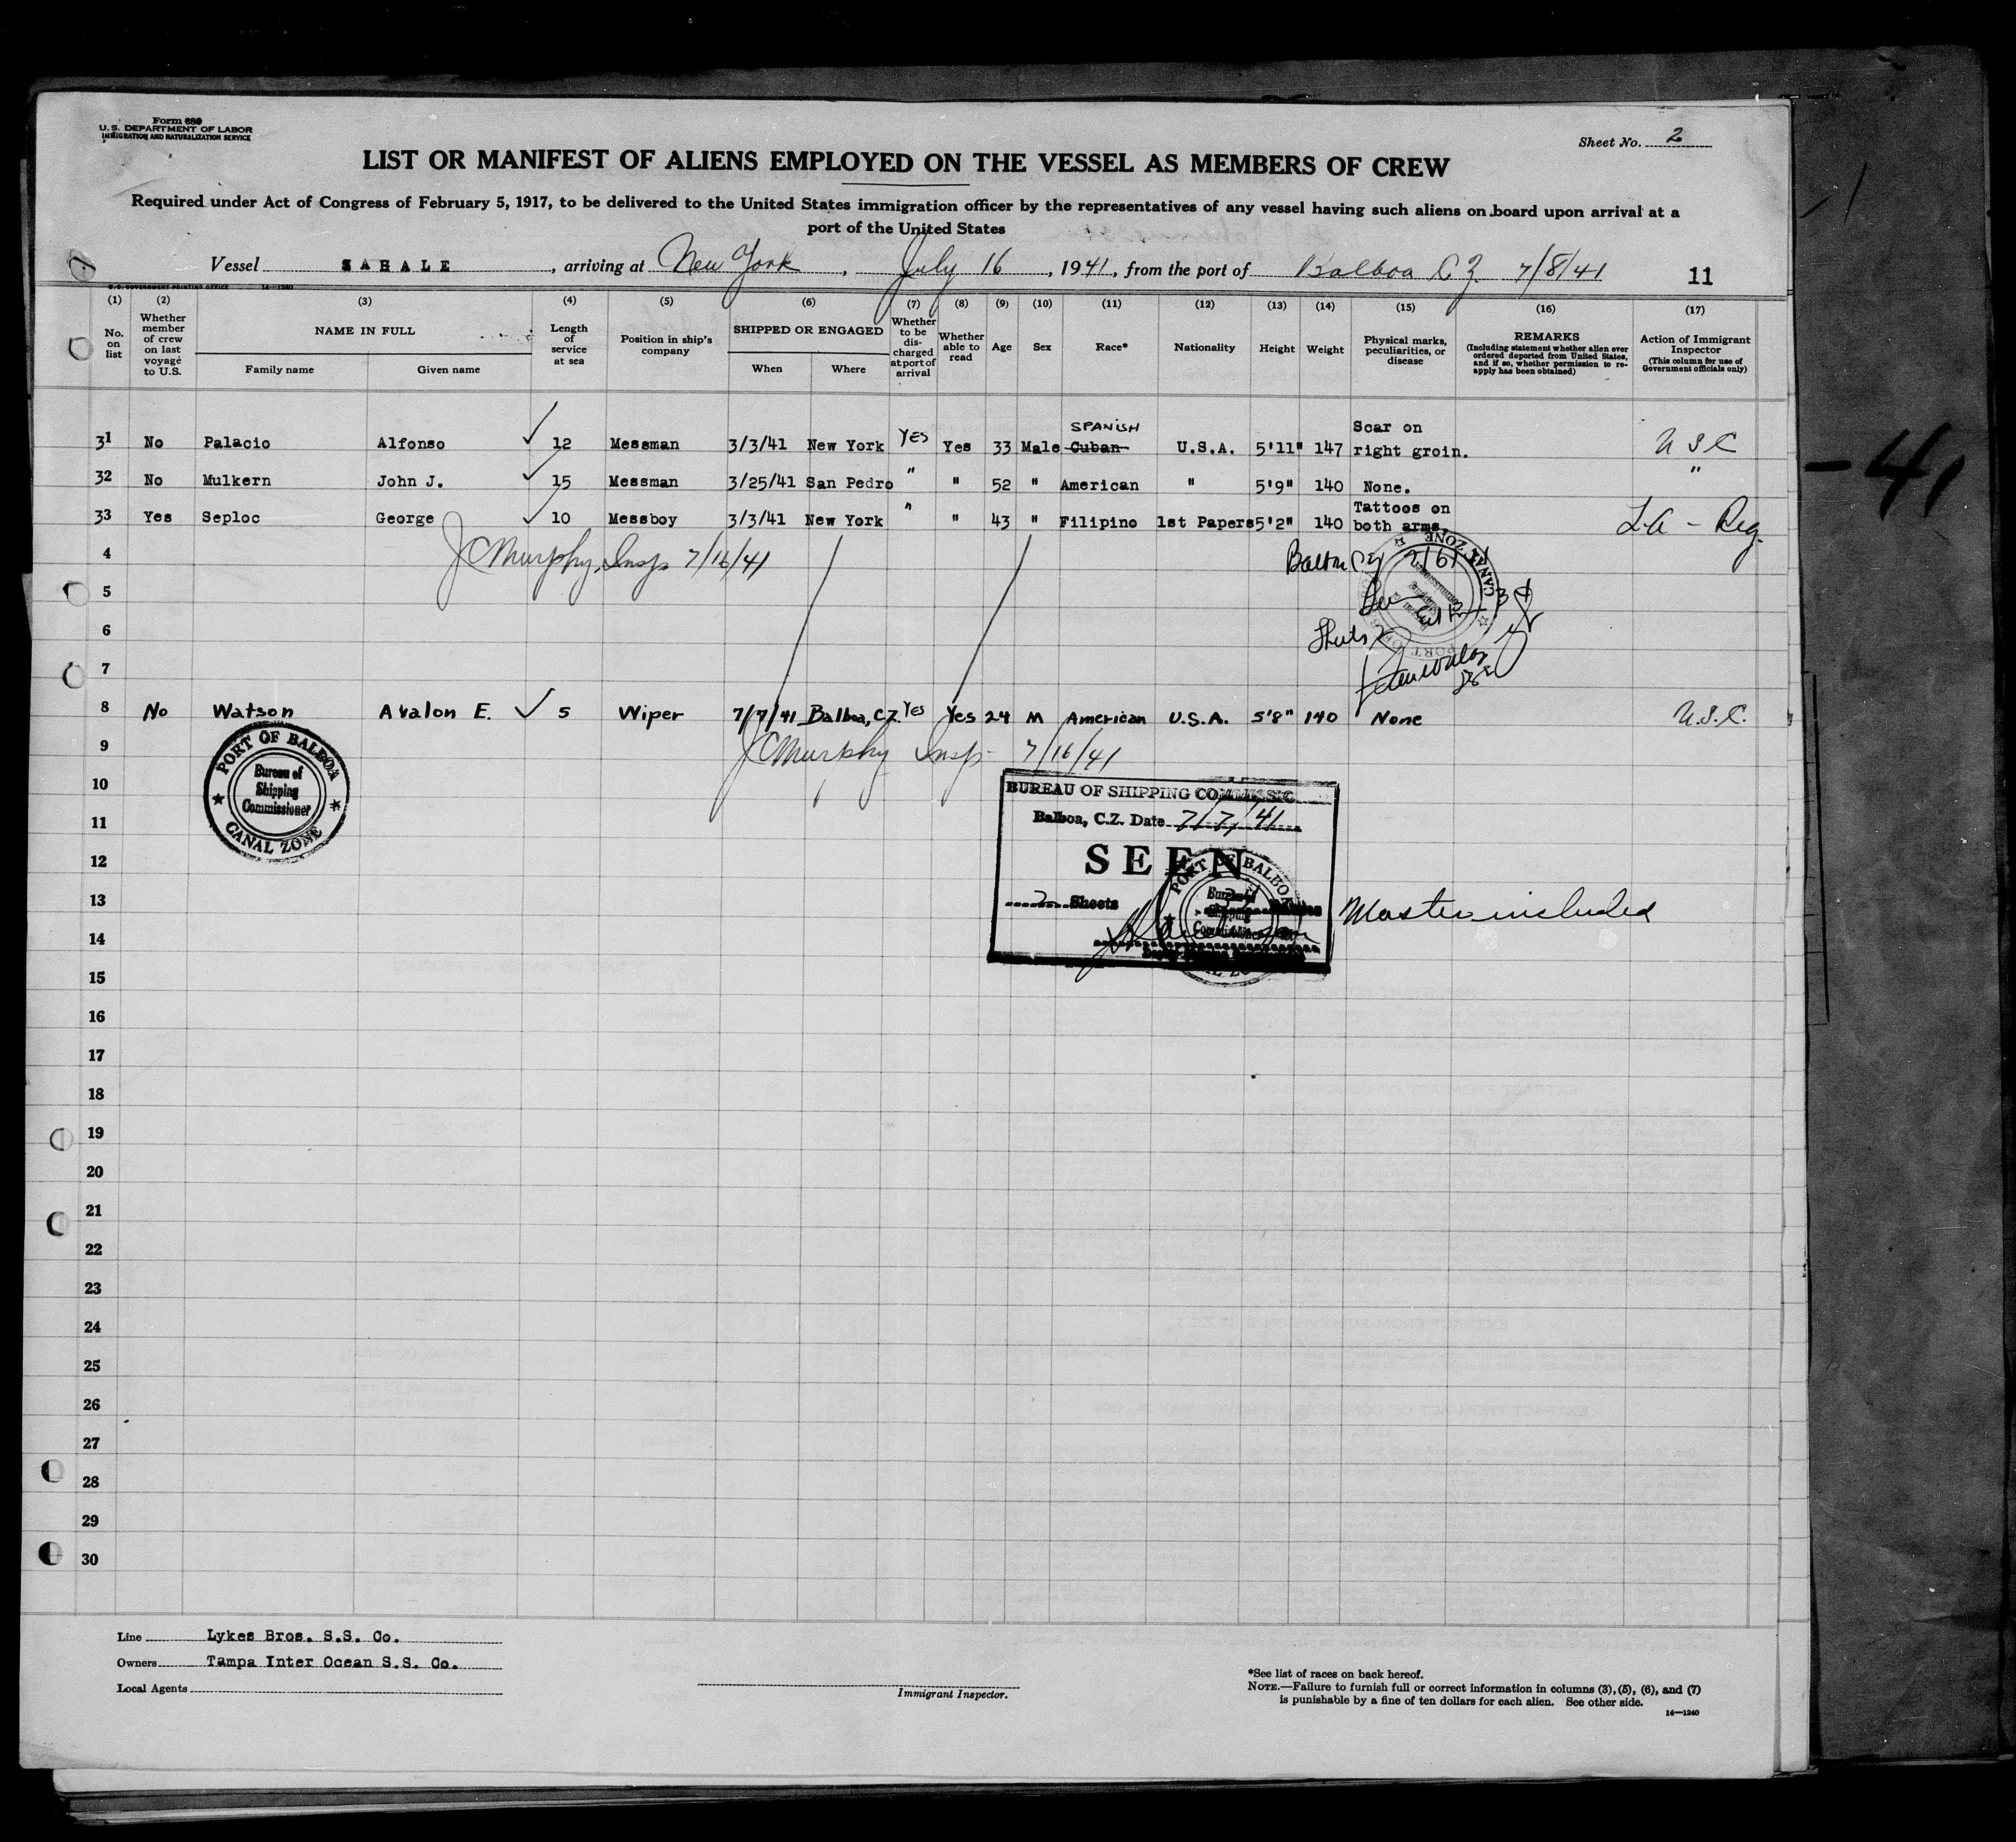 Form 680
U.S. DEPARTMENT OF LABOR
IMMIGRATION AND NATURALIZATION SERVICE
Sheet No. 2
LIST OR MANIFEST OF ALIENS EMPLOYED ON THE VESSEL AS MEMBERS OF CREW
Required under Act of Congress of February 5, 1917, to be delivered to the United States immigration officer by the representatives of any vessel having such aliens on board upon arrival at a
port of the United States
Vessel SAHALE, arriving at New York, July 16, 1941, from the port of Balboa C Z. 7/8/41
11
U.S. GOVERNMENT PRINTING OFFICE 14-1240
(1) (2) (3) (4) (5) (6) (7) (8) (9) (10) (11) (12) (13) (14) (15) (16) (17)
No. on list
Whether member of crew on last voyage to U.S.
NAME IN FULL
Family name
Given name
Length of service at sea
Position in ship's company
SHIPPED OR ENGAGED
When
Where
Whether to be discharged at port of arrival
Whether able to read
Age
Sex
Race*
Nationality
Height
Weight
Physical marks, peculiarities, or disease
REMARKS
(Including statement whether alien ever ordered deported from United States, and if so, whether permission to re-apply has been obtained)
Action of Immigrant Inspector
(This column for use of Government officials only)
31 No Palacio Alfonso ✓ 12 Messman 3/3/41 New York YES Yes 33 Male Cuban SPANISH U.S.A. 5'11" 147 Scar on right groin. U S C
32 No Mulkern John J. ✓ 15 Messman 3/25/41 San Pedro " " 52 " American " 5'9" 140 None. "
33 Yes Seploc George ✓ 10 Messboy 3/3/41 New York " " 43 " Filipino 1st Papers 5'2" 140 Tattoos on both arms. L.A - Reg.
4 JC Murphy, Insp 7/16/41
5
6
7
8 No Watson Avalon E. ✓ 5 Wiper 7/7/41 Balboa, C.Z. Yes Yes 24 M American U.S.A. 5'8" 140 None U.S.C.
9 JC Murphy Insp 7/16/41
PORT OF BALBOA
Bureau of
Shipping
Commissioner
CANAL ZONE
10
11
12
13
14
15
BUREAU OF SHIPPING COMMISSIO
Balboa, C.Z. Date 7/7/41
SEEN
2 Sheets
PORT OF BALBOA
Master included
16
17
18
19
20
21
22
23
24
25
26
27
28
29
30
-41
Line Lykes Bros. S.S. Co.
Owners Tampa Inter Ocean S.S. Co.
Local Agents
Immigrant Inspector.
*See list of races on back hereof.
NOTE.—Failure to furnish full or correct information in columns (3), (5), (6), and (7)
is punishable by a fine of ten dollars for each alien. See other side.
14—1240